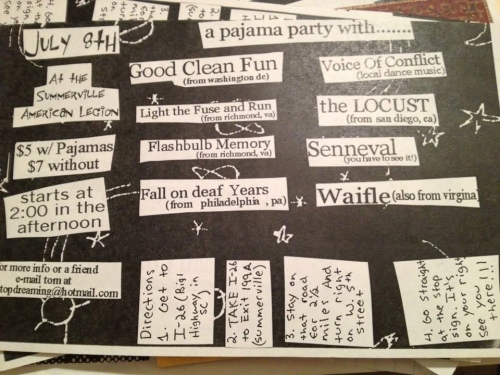 JULY 8TH
a pajama party with.......
At the
Summerville
American Legion
Good Clean Fun
(from washington dc)
Voice Of Conflict
(local dance music)
Light the Fuse and Run
(from richmond, va)
the LOCUST
(from san diego, ca)
$5 w/ Pajamas
$7 without
Flashbulb Memory
(from richmond, va)
Senneval
(you have to see it!)
starts at
2:00 in the
afternoon
Fall on deaf Years
(from philadelphia , pa)
Waifle (also from virgina)
or more info or a friend
e-mail tom at
topdreaming@hotmail.com
Directions
1. Get to
I-26 (Big
Highway in
SC)
2. TAKE I-26
to Exit 199A
(summerville)
3. Stay on
that road
for 2 1/2
miles And
turn right
on W. 5th
street
4. Go straight
at the stop
sign. It's
on your right
see you
there!!!